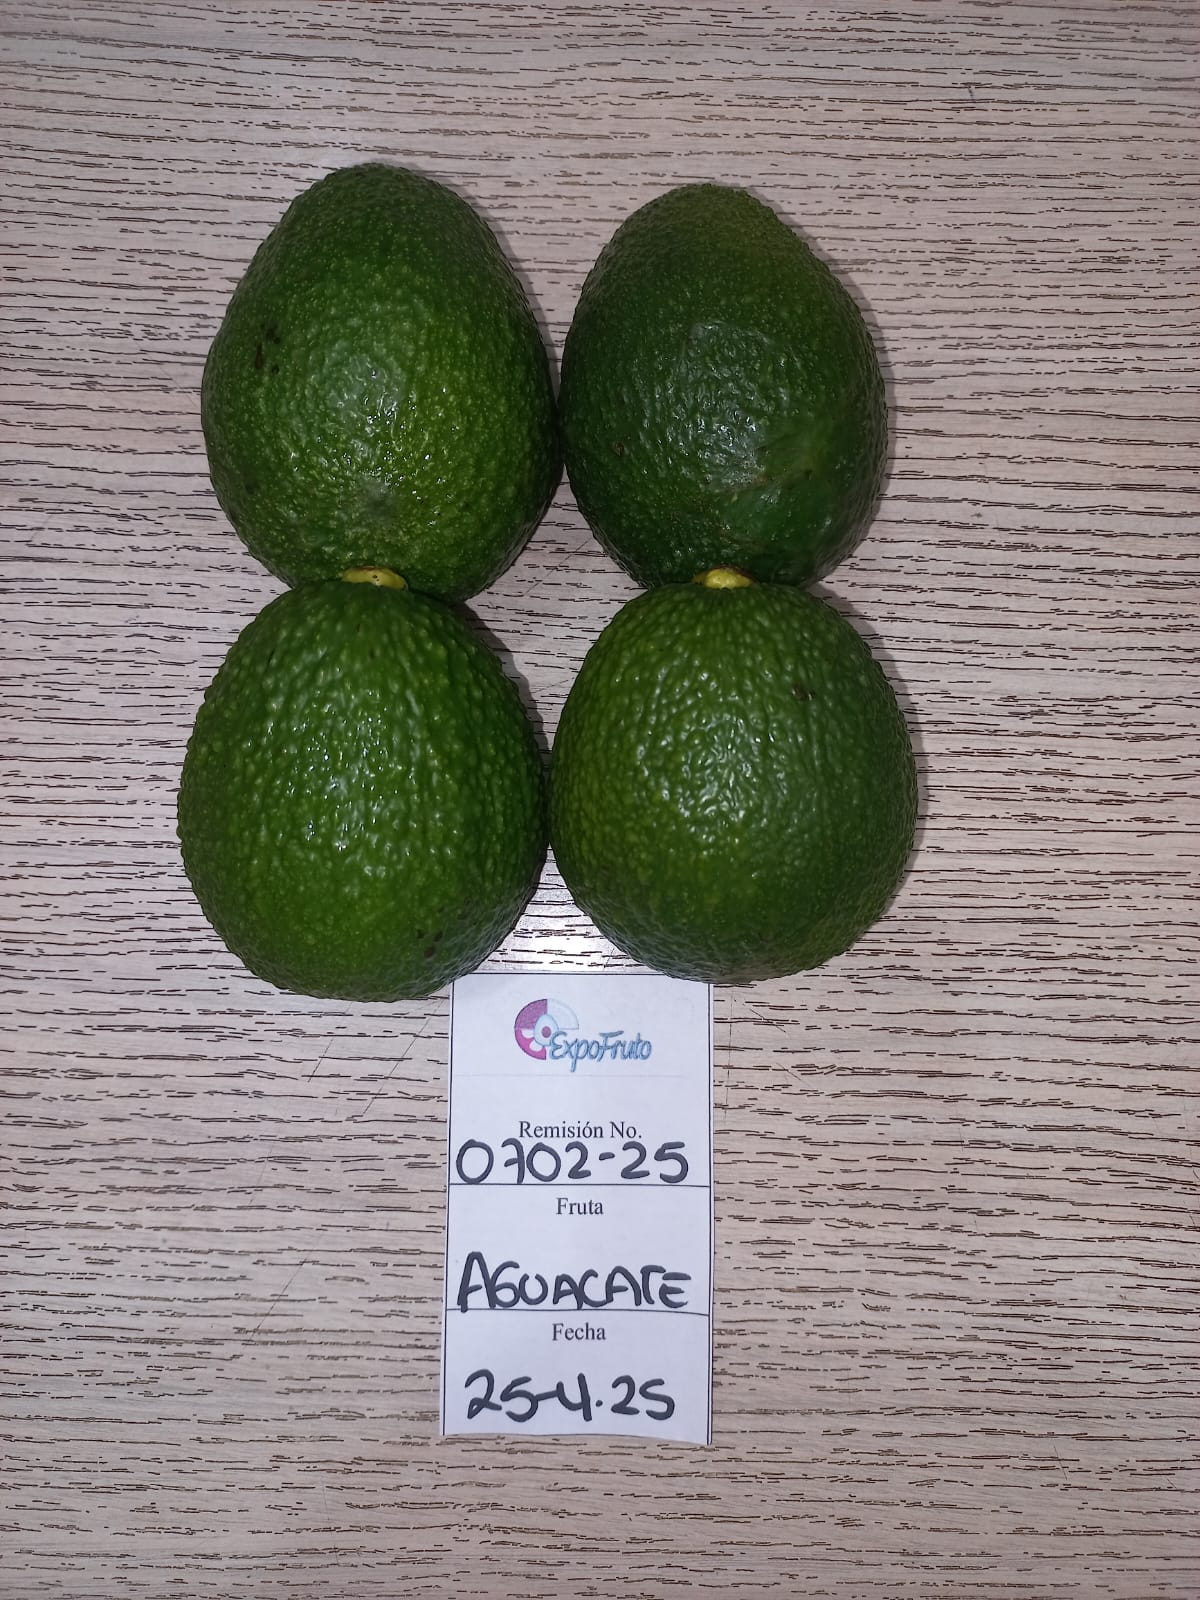 ExpoFruto
Remisión No.
0702-25
Fruta
AGUACATE
Fecha
25-4.25